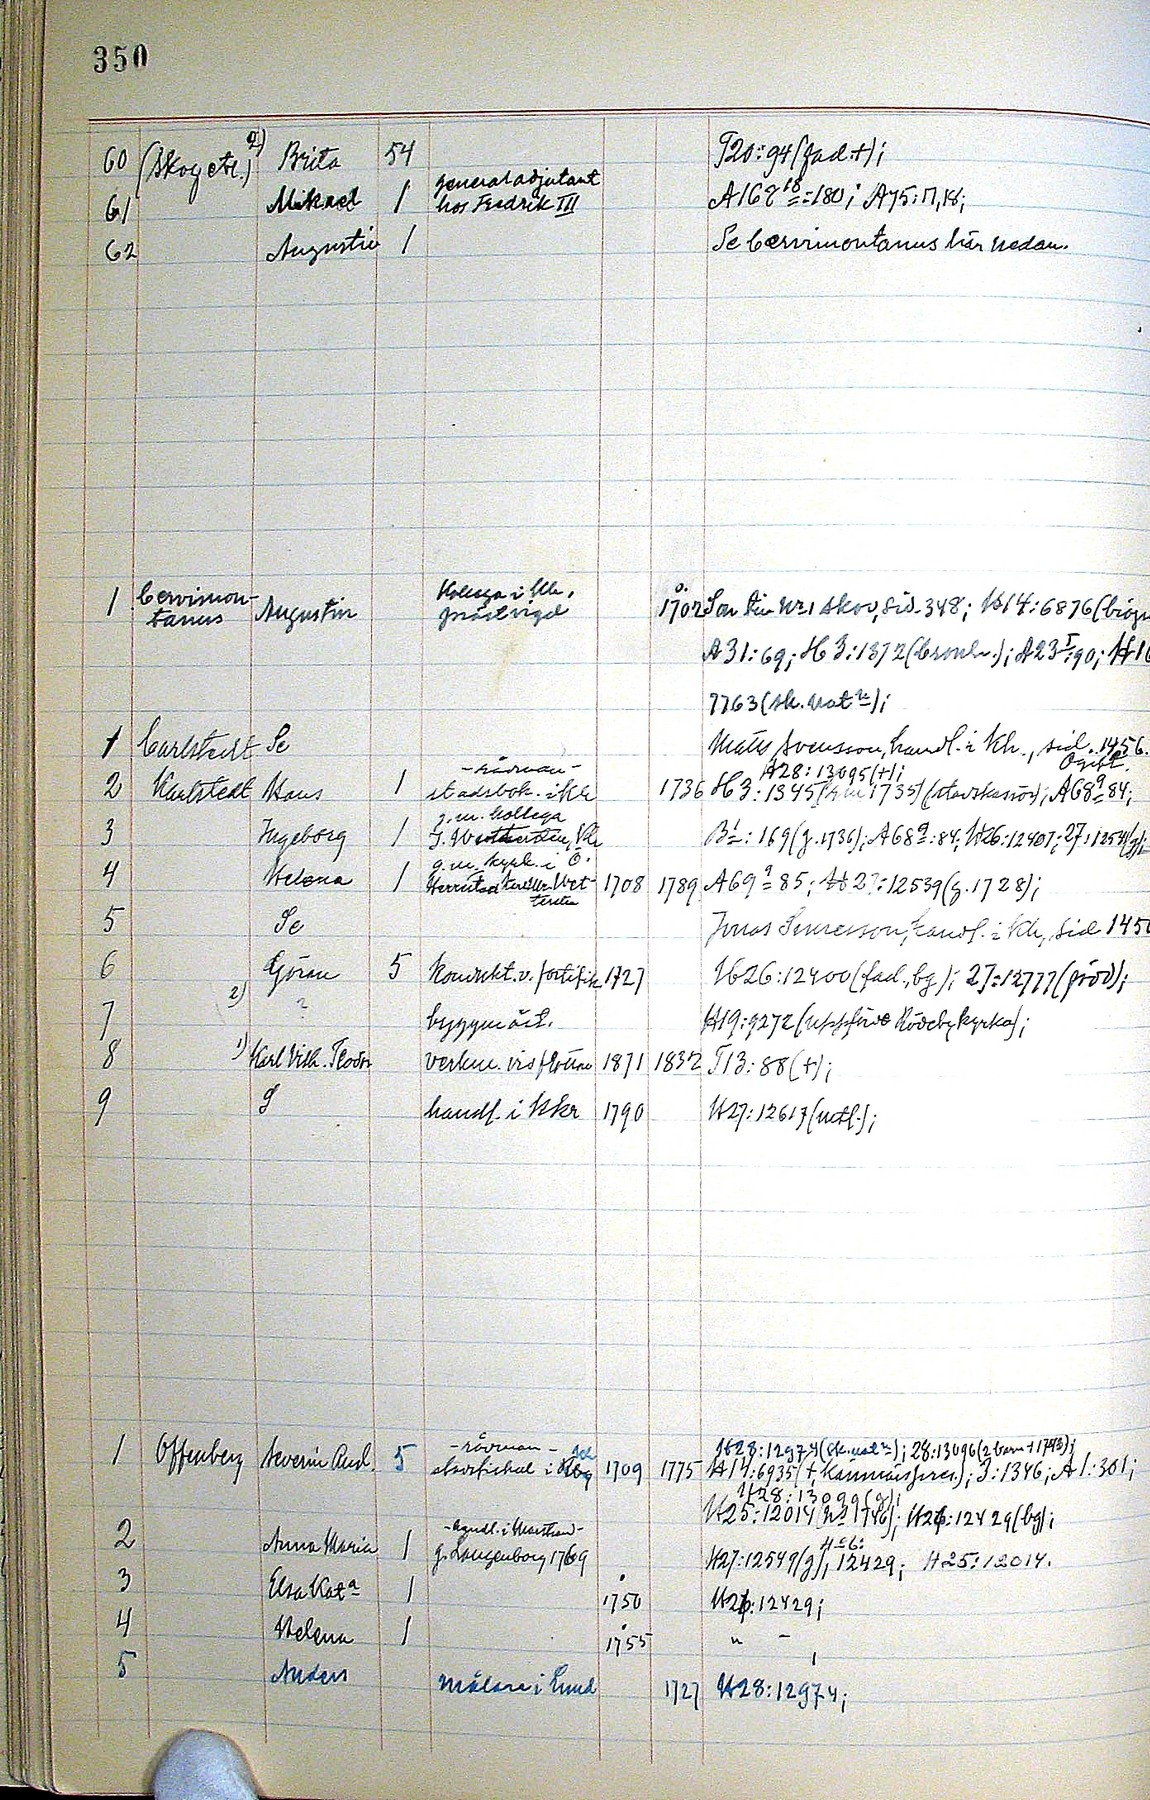 350
60 (Skog etc.) 2) Brita 54 T20:94 (fad.+);
61 Mikael 1 generaladjutant hos Fredrik III A168 18:180; A75:17,18;
62 Augustin 1 Se Cervimontanus här nedan.
1 Cervimon- Kollega i Kh.
tanus Augustin prästvigd 1702 Son till Nr 1 Skov, sid. 348; H14:6876 (biogr
A31:69; H3:1372 ; A23 I:90; H16
7763 (sk. nat n);
1 Carlstedt Se Mats Svensson, handl. i Kh., sid. 1456.
- rådman - H28:13095 (+); Ogift.
2 Karlstedt Hans 1 stadsbok. i Kh 1736 H3:1345 1735) ; A68 9:84;
g. m. kollega
3 Ingeborg 1 B1:169 (g. 1736); A68 9:84; H26:12407; 27:1254 (g);
g. m. kyrk. i Ö.
4 Helena 1 Herrestad Wet- 1708 1789 A69 9:85; H27:12539 (g. 1728);
terstén
5 Se Jonas handl. i Kh, sid 1450
6 Göran 5 Kondukt. v. fortifik 1727 H26:12400 (fad., bg); 27:12777 (född);
7 2) ? byggmäst. H19:9272 (uppförde Rödeby kyrka);
8 1) Karl Vilh. Teodor verkm. vid flottan 1871 1832 T13:88 (+);
9 J handl. i Kkr 1790 H27:12617 (utfl.);
- rådman - H28:12974 (sk. nat n); 28:13096 (2 barn + 1743);
1 Offenberg Severin And. 5 i 1709 1775 H14:6935 (+, ); 3:1346; A1:301;
H28:13099 (g);
H25:12014 1746); H26:12429 (bg);
- handl. i Marstrand - 4-6:
2 Anna Maria 1 g. Langenborg 1769 H27:12549 (g), 12429; H25:12014.
3 Elsa Kat a 1 1750 H26:12429;
4 Helena 1 1755 " -
5 Anders målare i Lund 1727 H28:12974;